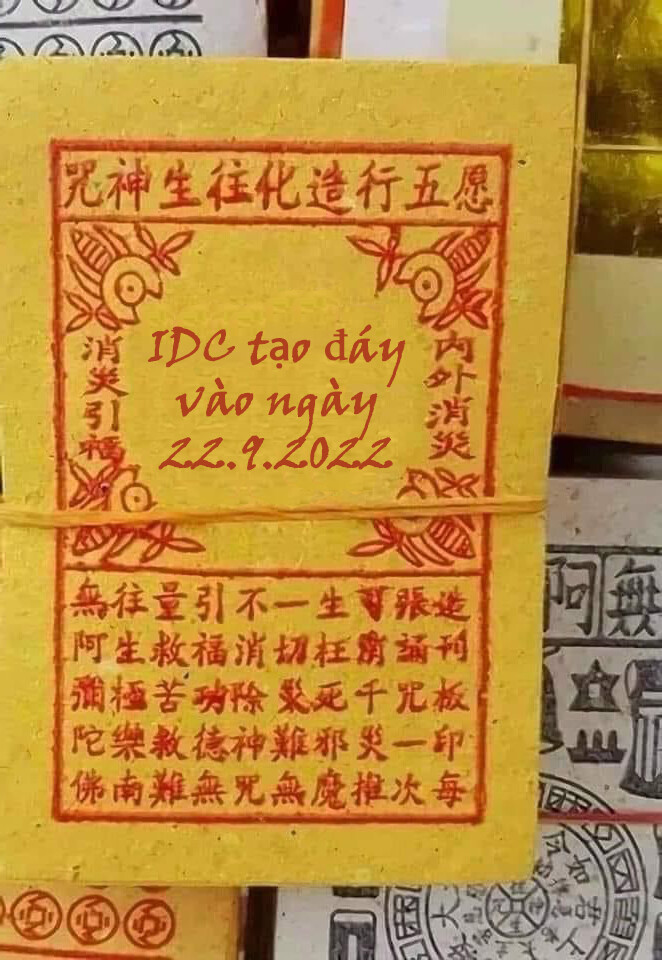 愿五行造化往生神咒
内外消災
IDC tạo đáy
vào ngày
22.9.2022
消災引福
造刊板印每
張誦咒一次
千災推
生枉死邪魔
一切災難無
不消除神咒
引福功德無
量救苦救難
往生極樂南
無阿彌陀佛
無阿